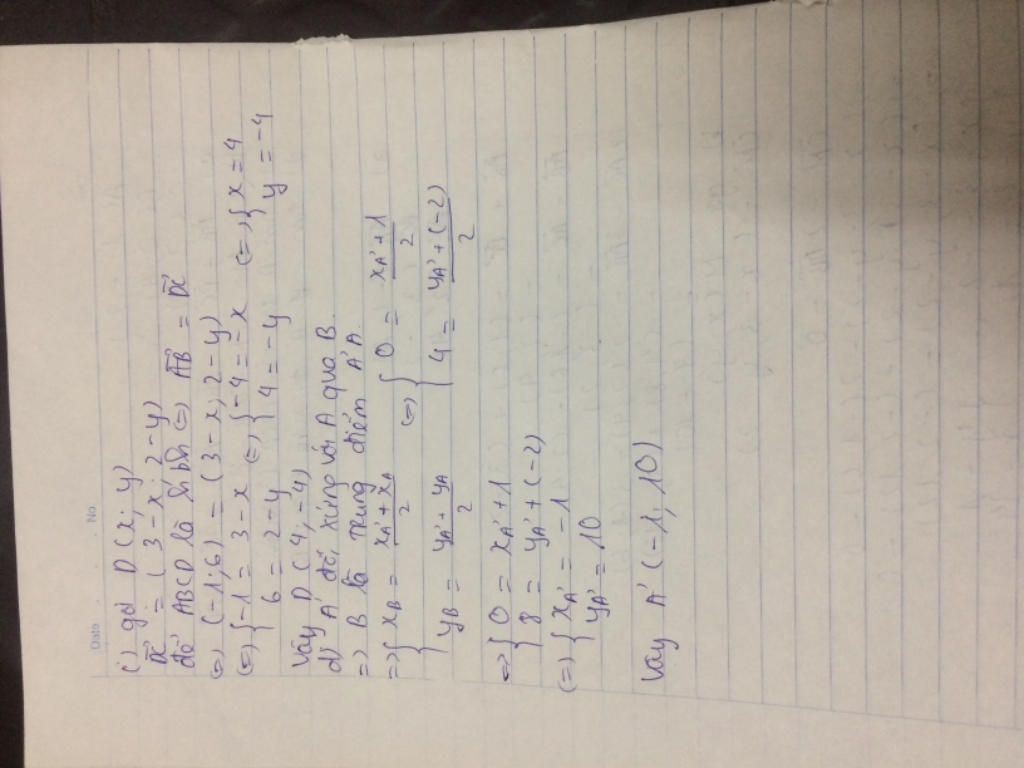 Date No
c) gọi D (x; y)
DC = (3 - x; 2 - y)
để ABCD là hbh <=> AB = DC
<=> (-1; 6) = (3 - x; 2 - y)
<=> { -1 = 3 - x <=> { -4 = -x <=> { x = 4
6 = 2 - y 4 = -y y = -4
Vậy D (4; -4)
d) A' đối xứng với A qua B
=> B là trung điểm A'A
=> { xB = (xA' + xA)/2 <=> { 0 = (xA' + 1)/2
yB = (yA' + yA)/2 4 = (yA' + (-2))/2
=> { 0 = xA' + 1
8 = yA' + (-2)
<=> { xA' = -1
yA' = 10
Vậy A' (-1; 10)